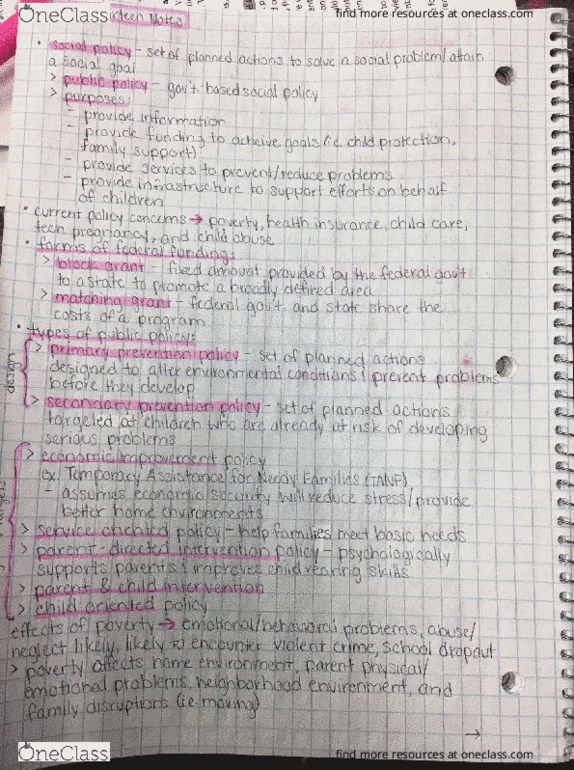 OneClass
find more resources at oneclass.com
Notes
• social policy - set of planned actions to solve a social problem/attain
a social goal
> public policy - gov't-based social policy
> purposes:
- provide information
- provide funding to acheive goals (ie. child protection,
family support)
- provide services to prevent/reduce problems
- provide infrastructure to support efforts on behalf
of children
• current policy concerns → poverty, health insurance, child care,
teen pregnancy, and child abuse
• forms of federal funding:
> block grant - fixed amount provided by the federal gov't
to a state to promote a broadly defined area
> matching grant - federal gov't. and state share the
costs of a program
• types of public policy:
> primary prevention policy - set of planned actions
designed to alter environmental conditions & prevent problems
before they develop
> secondary prevention policy - set of planned actions
targeted at children who are already at risk of developing
serious problems
> economic improvement policy
ex. Temporary Assistance for Needy Families (TANF)
- assumes economic security will reduce stress/provide
better home environments
> service oriented policy - help families meet basic needs
> parent-directed intervention policy - psychologically
supports parents & improves child rearing skills
> parent & child intervention
> child oriented policy
effects of poverty → emotional/behavioral problems, abuse/
neglect likely, likely to encounter violent crime, school dropout
> poverty affects home environment, parent physical/
emotional problems, neighborhood environment, and
family disruptions (ie. moving)
→
OneClass
find more resources at oneclass.com